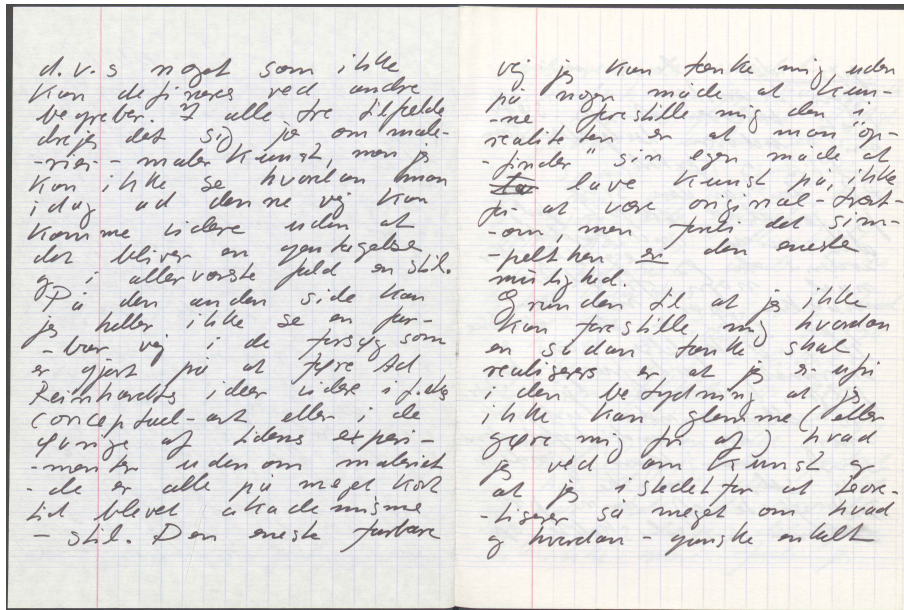 d.v.s noget som ikke
kan defineres ved andre
begreber. I alle tre tilfælde
drejer det sig jo om male-
-rier - malerkunst, men jeg
kan ikke se hvordan man
idag ad denne vej kan
komme videre uden at
det bliver en gentagelse
og i allerværste fald en stil.
På den anden side kan
jeg heller ikke se en far-
-bar vej i de forsøg som
er gjort på at føre Ad
Reinhardts ideer videre i f.eks
conceptuel-art eller i de
øvrige af tidens experi-
-menter udenom maleriet
- de er alle på meget kort
tid blevet akademisme
- stil. Den eneste farbare
vej jeg kan tænke mig, uden
på nogen måde at kun-
-ne forestille mig den i
realiteten er at man "op-
-finder" sin egen måde at
lave kunst på, ikke
for at være original - tvært-
-om, men fordi det sim-
-pelthen er den eneste
mulighed.
Grunden til at jeg ikke
kan forestille mig hvordan
en sådan tanke skal
realiseres er at jeg er ufri
i den betydning at jeg
ikke kan glemme (eller
gøre mig fri af) hvad
jeg ved om kunst og
at jeg istedetfor at teore-
-tiserer så meget om hvad
og hvordan - ganske enkelt